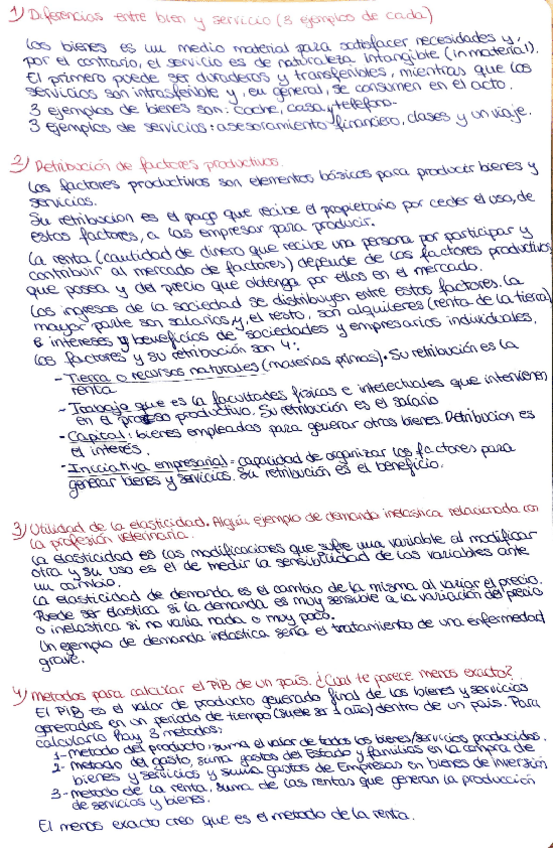 1) Diferencias entre bien y servicio (3 ejemplos de cada)
Los bienes es un medio material para satisfacer necesidades y,
por el contrario, el servicio es de naturaleza intangible (inmaterial).
El primero puede ser duraderos y transferibles, mientras que los
servicios son intrasferible y, en general, se consumen en el acto.
3 ejemplos de bienes son: coche, casa y telefono.
3 ejemplos de servicios: asesoramiento financiero, clases y un viaje.
2) Retribución de factores productivos.
Los factores productivos son elementos básicos para producir bienes y
servicios.
Su retribucion es el pago que recibe el propietario por ceder el uso, de
estos factores, a las empresas para producir.
La renta (cantidad de dinero que recibe una persona por participar y
contribuir al mercado de factores) depende de los factores productivos
que posea y del precio que obtenga por ellos en el mercado.
Los ingresos de la sociedad se distribuyen entre estos factores. La
mayor parte son salarios y, el resto, son alquileres (renta de la tierra)
e intereses y beneficios de sociedades y empresarios individuales.
Los factores y su retribución son 4:
- Tierra o recursos naturales (materias primas). Su retribución es la
renta
- Trabajo que es la facultades físicas e intelectuales que intervienen
en el proceso productivo. Su retribución es el salario
- Capital: bienes empleadas para generar otros bienes. Retribucion es
el interés.
- Iniciativa empresarial = capacidad de organizar los factores para
generar bienes y servicios. Su retribución es el beneficio.
3) Utilidad de la elasticidad. Algún ejemplo de demanda inelastica relacionada con
la profesión veterinaria.
La elasticidad es las modificaciones que sufre una variable al modificar
otra y su uso es el de medir la sensibilidad de las variables ante
un cambio.
La elasticidad de demanda es el cambio de la misma al variar el precio.
Puede ser elastica si la demanda es muy sensible a la variación del precio
o inelastica si no varia nada o muy poco.
Un ejemplo de demanda inelastica seria el tratamiento de una enfermedad
grave.
4) Metodos para calcular el PIB de un pais. ¿Cual te parece menos exacto?
El PIB es el valor de producto generado final de los bienes y servicios
generados en un periodo de tiempo (suele ser 1 año) dentro de un pais. Para
calcularlo hay 3 metodos:
1- metodo del producto, suma el valor de todos los bienes/servicios producidos.
2- metodo del gasto, suma gastos del Estado y familias en la compra de
bienes y servicios y suma gastos de Empresas en bienes de inversión
3- metodo de la renta. Suma de las rentas que generan la producción
de servicios y bienes.
El menos exacto creo que es el metodo de la renta.